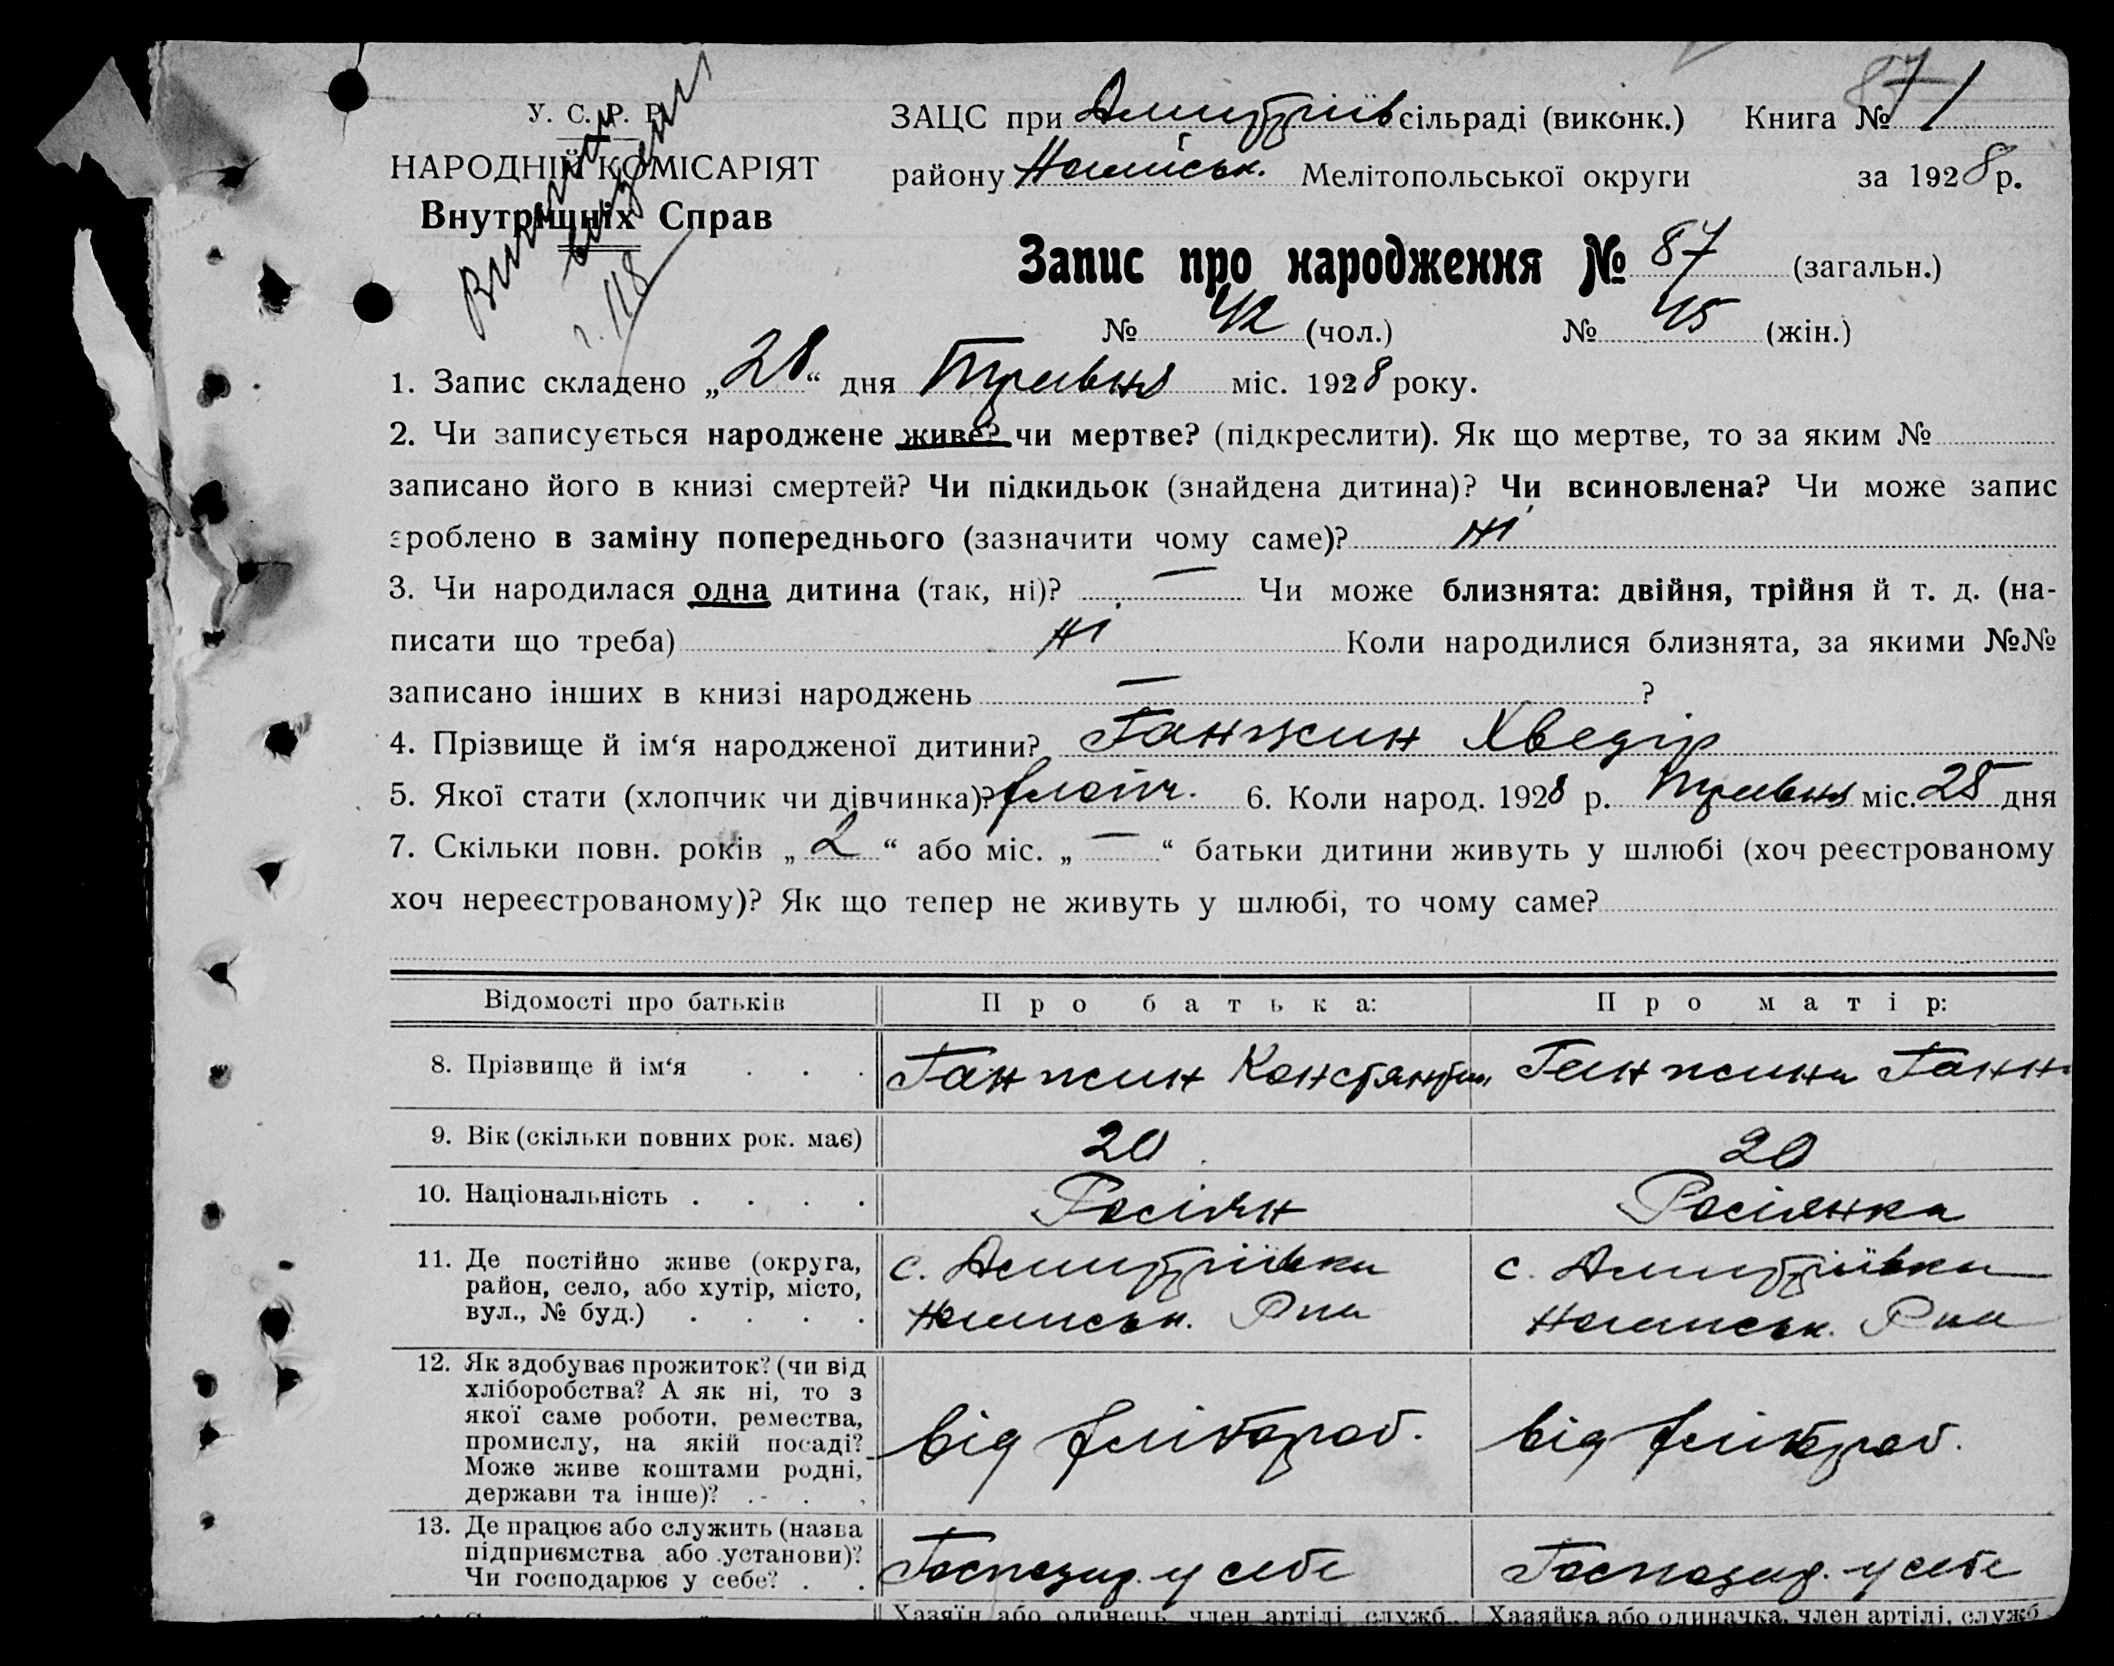 87
У. С. Р. Р.
НАРОДНІЙ КОМІСАРІЯТ
Внутрішніх Справ
г. 118
ЗАЦС при Дмитріїв сільраді (виконк.) Книга № 1
району Мелітопольської округи за 1928 р.
Запис про народження № 87 (загальн.)
№ 42 (чол.) № 45 (жін.)
1. Запис складено „28“ дня Травня міс. 1928 року.
2. Чи записується народжене живе? чи мертве? (підкреслити). Як що мертве, то за яким №
записано його в книзі смертей? Чи підкидьок (знайдена дитина)? Чи всиновлена? Чи може запис
зроблено в заміну попереднього (зазначити чому саме)? Ні
3. Чи народилася одна дитина (так, ні)? — Чи може близнята: двійня, трійня й т. д. (на-
писати що треба) Ні Коли народилися близнята, за якими №№
записано інших в книзі народжень — ?
4. Прізвище й ім‘я народженої дитини? Ганжин Хведір
5. Якої стати (хлопчик чи дівчинка)? хлопч. 6. Коли народ. 1928 р. Травня міс. 25 дня
7. Скільки повн. років „2“ або міс. „—“ батьки дитини живуть у шлюбі (хоч реєстрованому
хоч нереєстрованому)? Як що тепер не живуть у шлюбі, то чому саме?
Відомості про батьків Про батька: Про матір:
8. Прізвище й ім‘я . . . Ганжин Констянтин Ганжина Ганна
9. Вік (скільки повних рок. має) 20 20
10. Національність . . . . Росіян Росіянка
11. Де постійно живе (округа, с. Дмитріївка с. Дмитріївка
район, село, або хутір, місто,
вул., № буд.) . . . . Р-на Р-на
12. Як здобуває прожиток? (чи від
хліборобства? А як ні, то з
якої саме роботи, ремества,
промислу, на якій посаді? від хлібороб. від хлібороб.
Може живе коштами родні,
держави та інше)? . . .
13. Де працює або служить (назва
підприємства або установи)? Господар. у себе Господар. у себе
Чи господарює у себе? . .
Хазяїн або одинець, член артілі, служб. Хазяйка або одиначка, член артілі, служб